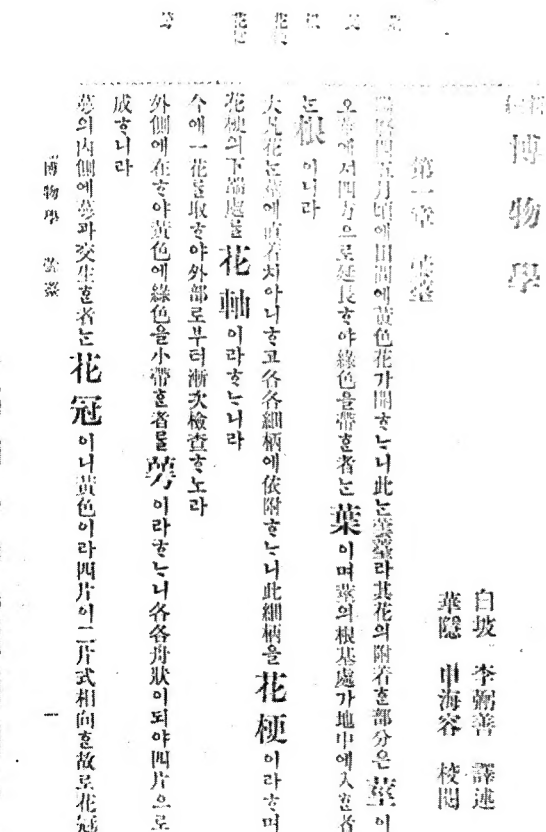 博物學
白坡 李弼善 譯述
華隱 申海容 校閱
第一章 蕓薹
陽曆四五月頃에田間에黃色花가開ᄒᆞᄂᆞ니此ᄂᆞᆫ蕓薹라其花의附着ᄒᆞᆫ部分은莖이
오莖에서四方으로延長ᄒᆞ야綠色을帶ᄒᆞᆫ者ᄂᆞᆫ葉이며莖의根基處가地中에入ᄒᆞᆫ者
ᄂᆞᆫ根이니라
大凡花ᄂᆞᆫ莖에直着치아니ᄒᆞ고各各細柄에依附ᄒᆞᄂᆞ니此細柄을花梗이라ᄒᆞ며
花梗의下端處를花軸이라ᄒᆞᄂᆞ니라
今에一花를取ᄒᆞ야外部로부터漸次檢查ᄒᆞ노라
外側에在ᄒᆞ야黃色에綠色을小帶ᄒᆞᆫ者를萼이라ᄒᆞᄂᆞ니各各舟狀이되야四片으로
成ᄒᆞ니라
萼의內側에萼과交生ᄒᆞᆫ者ᄂᆞᆫ花冠이니黃色이라四片이二片式相向ᄒᆞᆫ故로花冠
莖
葉
根
花梗
花軸
萼
博物學 蕓薹
一